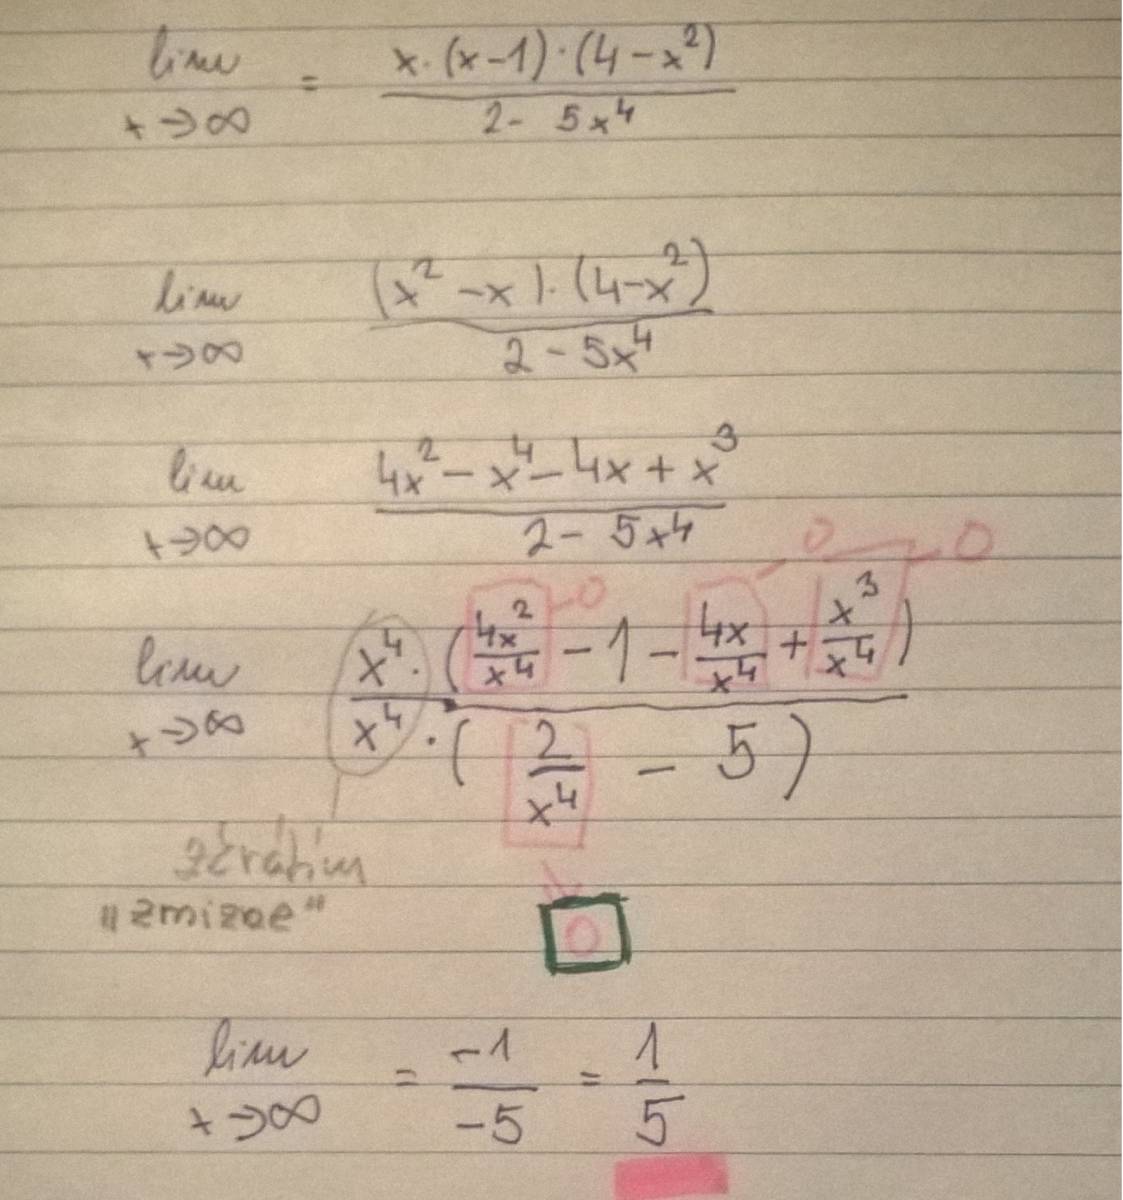 lim x→∞ = x·(x-1)·(4-x²) / 2- 5x⁴
lim x→∞ (x²-x)·(4-x²) / 2-5x⁴
lim x→∞ 4x²-x⁴-4x+x³ / 2- 5x⁴
0 0
0
lim x→∞ x⁴·(4x²/x⁴ -1- 4x/x⁴ + x³/x⁴) / x⁴·(2/x⁴ - 5)
"zmizoe"
0
lim x→∞ = -1/-5 = 1/5